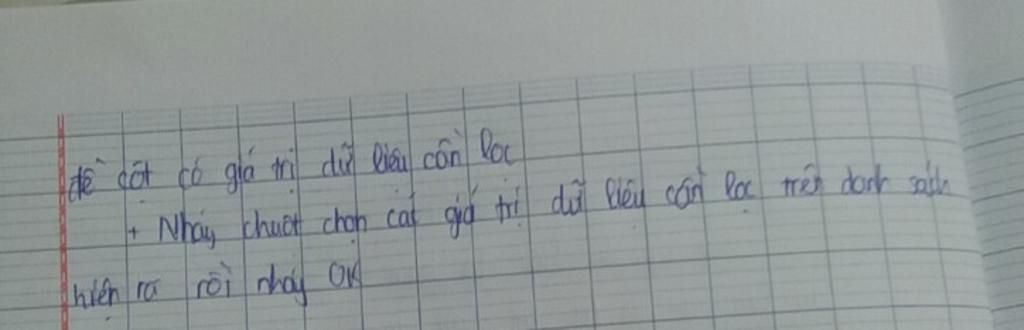 đề cột có giá trị dữ liệu cần lọc
+ Nháy chuột chọn các giá trị dữ liệu cần lọc trên danh sách
hiện ra rồi nháy OK